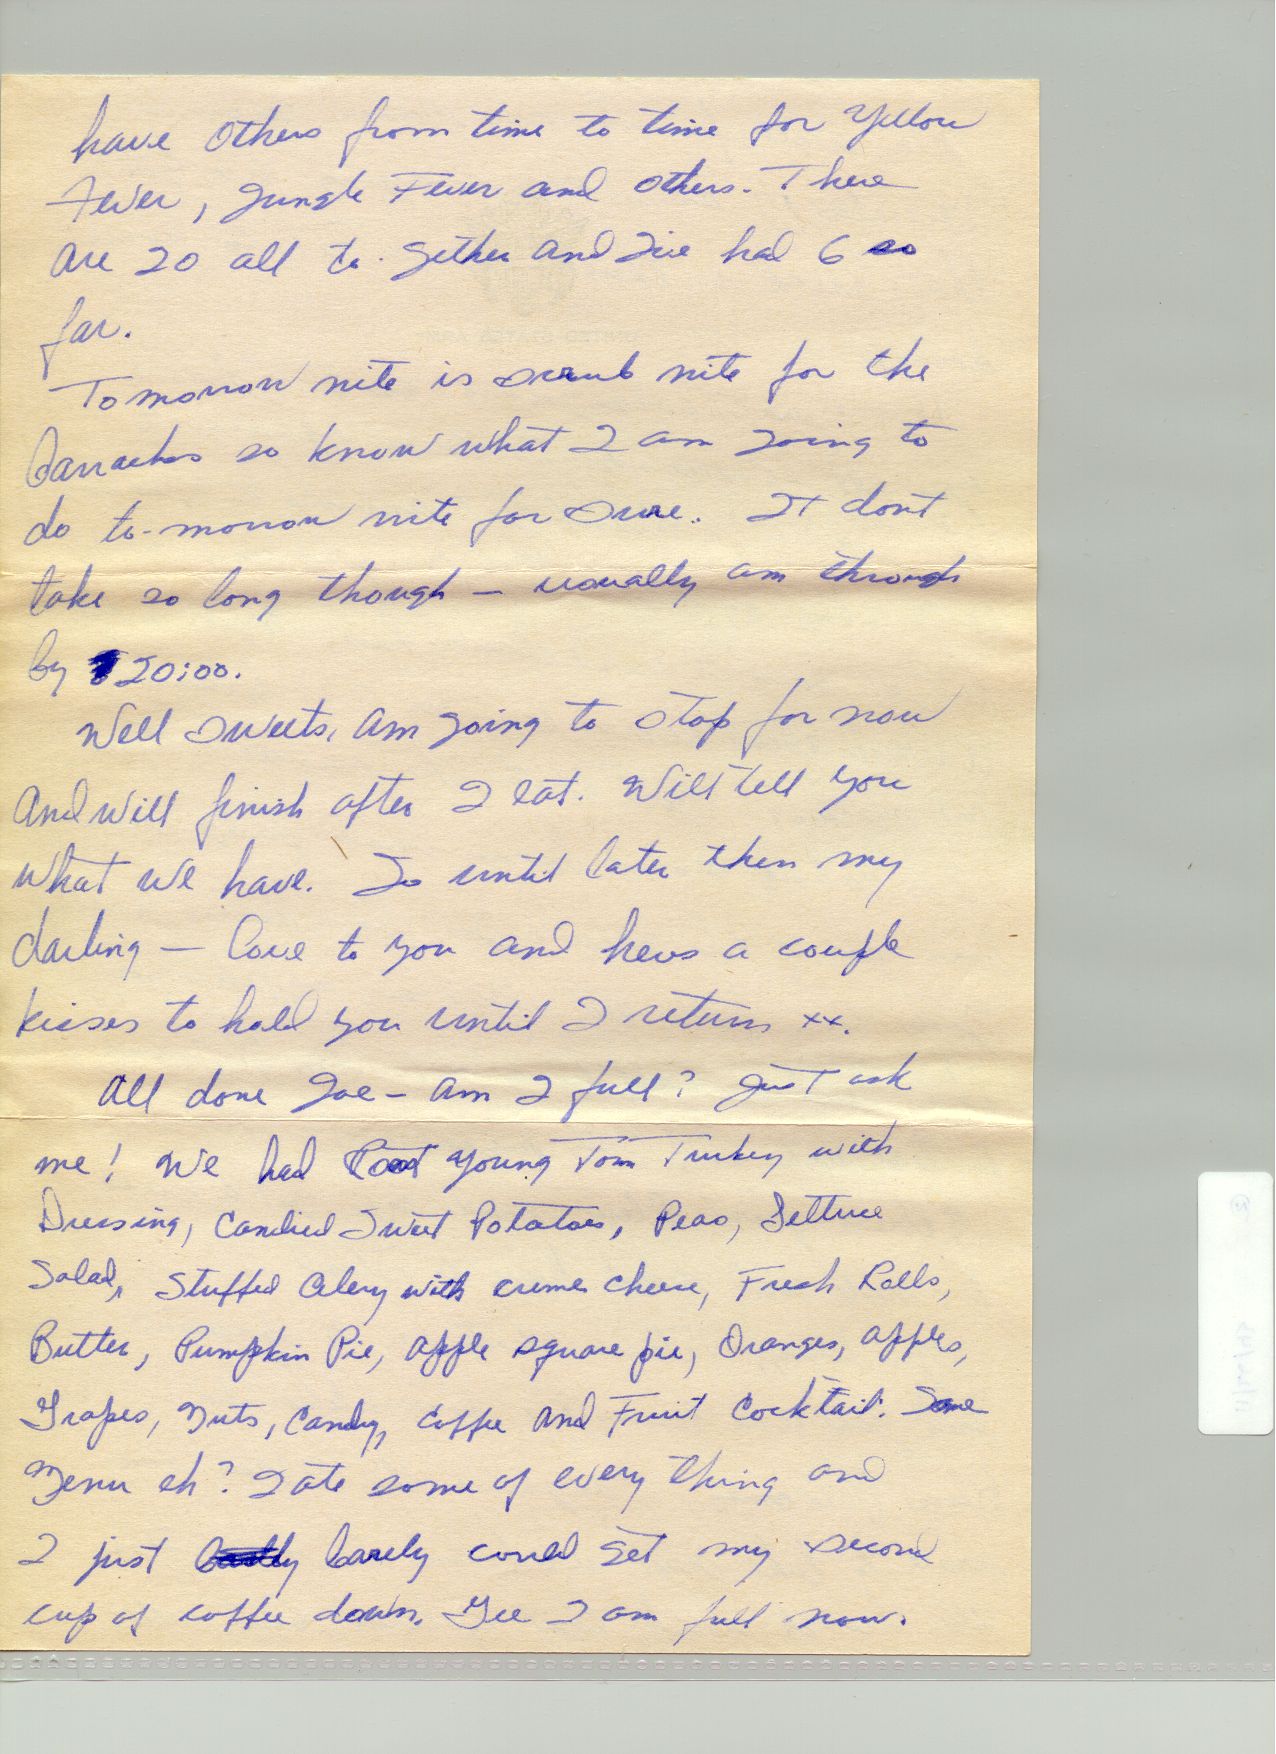 have others from time to time for Yellow
Fever, Jungle Fever and others. There
are 20 all to-gether and I've had 6 so
far.
Tomorrow nite is scrub nite for the
barracks so know what I am going to
do to-morrow nite for sure. It dont
take so long though — usually am through
by 20:00.
Well sweets, am going to stop for now
and will finish after I eat. Will tell you
what we have. So until later then my
darling — love to you and heres a couple
kisses to hold you until I return xx.
All done Joe — am I full? Just ask
me! We had Roast young Tom Turkey with
Dressing, Candied Sweet Potatoes, Peas, Lettuce
Salad, Stuffed Celery with creme cheese, Fresh Rolls,
Butter, Pumpkin Pie, apple square pie, Oranges, apples,
Grapes, Nuts, Candy, Coffee and Fruit Cocktail. Some
Menu eh? I ate some of every thing and
I just barely could get my second
cup of coffee down. Gee I am full now.